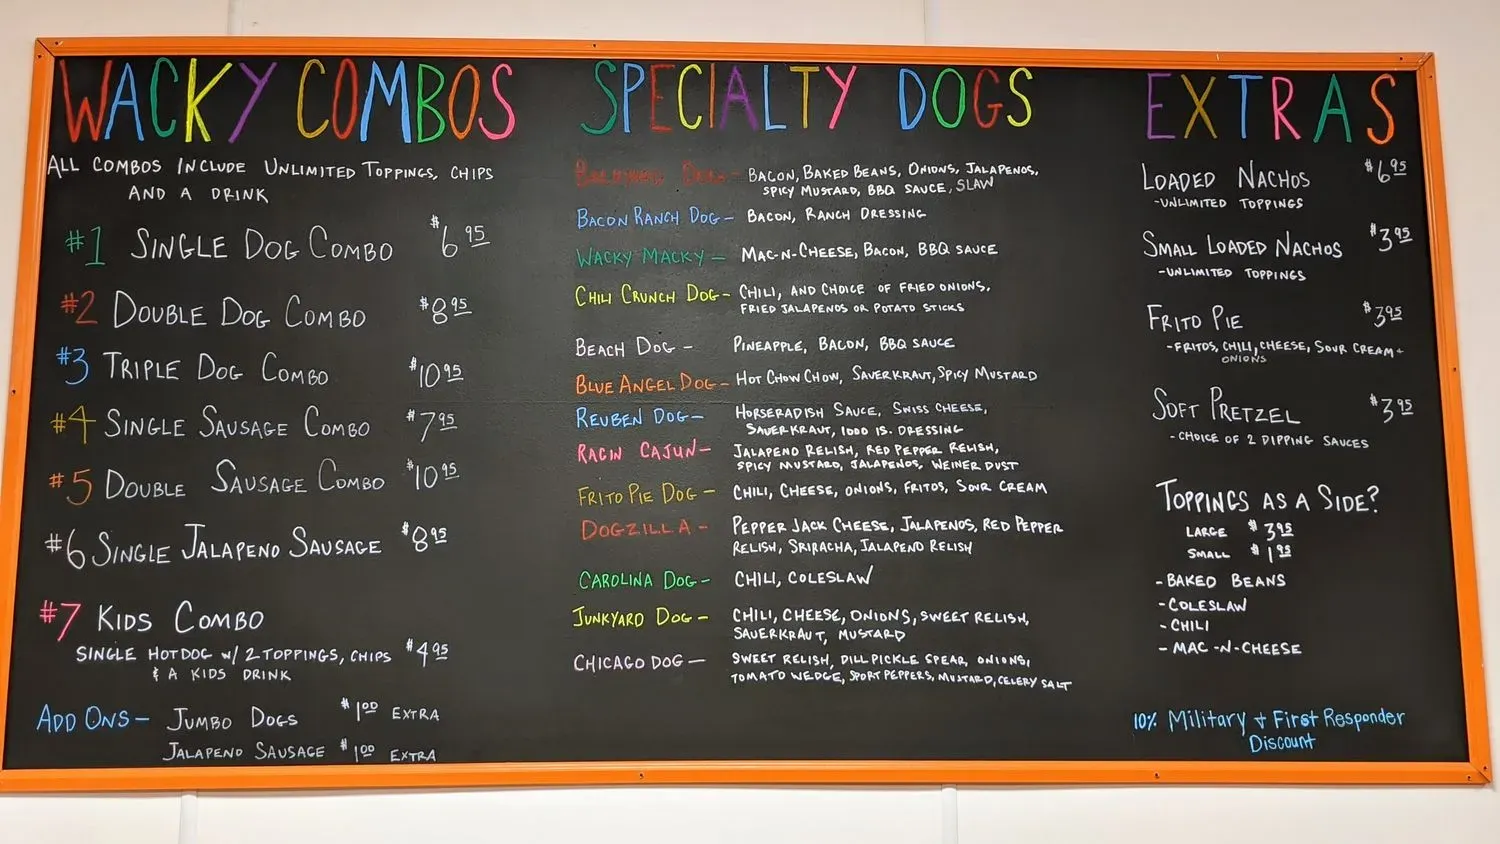 WACKY COMBOS
ALL COMBOS INCLUDE UNLIMITED TOPPINGS, CHIPS
AND A DRINK
#1 SINGLE DOG COMBO $6 95
#2 DOUBLE DOG COMBO $8 95
#3 TRIPLE DOG COMBO $10 95
#4 SINGLE SAUSAGE COMBO $7 95
#5 DOUBLE SAUSAGE COMBO $10 95
#6 SINGLE JALAPENO SAUSAGE $8 95
#7 KIDS COMBO
SINGLE HOTDOG W/ 2 TOPPINGS, CHIPS $4 95
& A KIDS DRINK
ADD ONS - JUMBO DOGS $1 00 EXTRA
JALAPENO SAUSAGE $1 00 EXTRA
SPECIALTY DOGS
- BACON, BAKED BEANS, ONIONS, JALAPENOS,
SPICY MUSTARD, BBQ SAUCE, SLAW
BACON RANCH DOG - BACON, RANCH DRESSING
WACKY MACKY - MAC-N-CHEESE, BACON, BBQ SAUCE
CHILI CRUNCH DOG - CHILI, AND CHOICE OF FRIED ONIONS,
FRIED JALAPENOS OR POTATO STICKS
BEACH DOG - PINEAPPLE, BACON, BBQ SAUCE
BLUE ANGEL DOG - HOT CHOW CHOW, SAUERKRAUT, SPICY MUSTARD
REUBEN DOG - HORSERADISH SAUCE, SWISS CHEESE,
SAUERKRAUT, 1000 IS. DRESSING
RAGIN CAJUN - JALAPENO RELISH, RED PEPPER RELISH,
SPICY MUSTARD, JALAPENOS, WEINER DUST
FRITO PIE DOG - CHILI, CHEESE, ONIONS, FRITOS, SOUR CREAM
DOGZILLA - PEPPER JACK CHEESE, JALAPENOS, RED PEPPER
RELISH, SRIRACHA, JALAPENO RELISH
CAROLINA DOG - CHILI, COLESLAW
JUNKYARD DOG - CHILI, CHEESE, ONIONS, SWEET RELISH,
SAUERKRAUT, MUSTARD
CHICAGO DOG - SWEET RELISH, DILL PICKLE SPEAR, ONIONS,
TOMATO WEDGE, SPORT PEPPERS, MUSTARD, CELERY SALT
EXTRAS
LOADED NACHOS $6 95
-UNLIMITED TOPPINGS
SMALL LOADED NACHOS $3 95
-UNLIMITED TOPPINGS
FRITO PIE $3 95
-FRITOS, CHILI, CHEESE, SOUR CREAM +
ONIONS
SOFT PRETZEL $3 95
-CHOICE OF 2 DIPPING SAUCES
TOPPINGS AS A SIDE?
LARGE $3 95
SMALL $1 95
-BAKED BEANS
-COLESLAW
-CHILI
-MAC-N-CHEESE
10% Military + First Responder
Discount